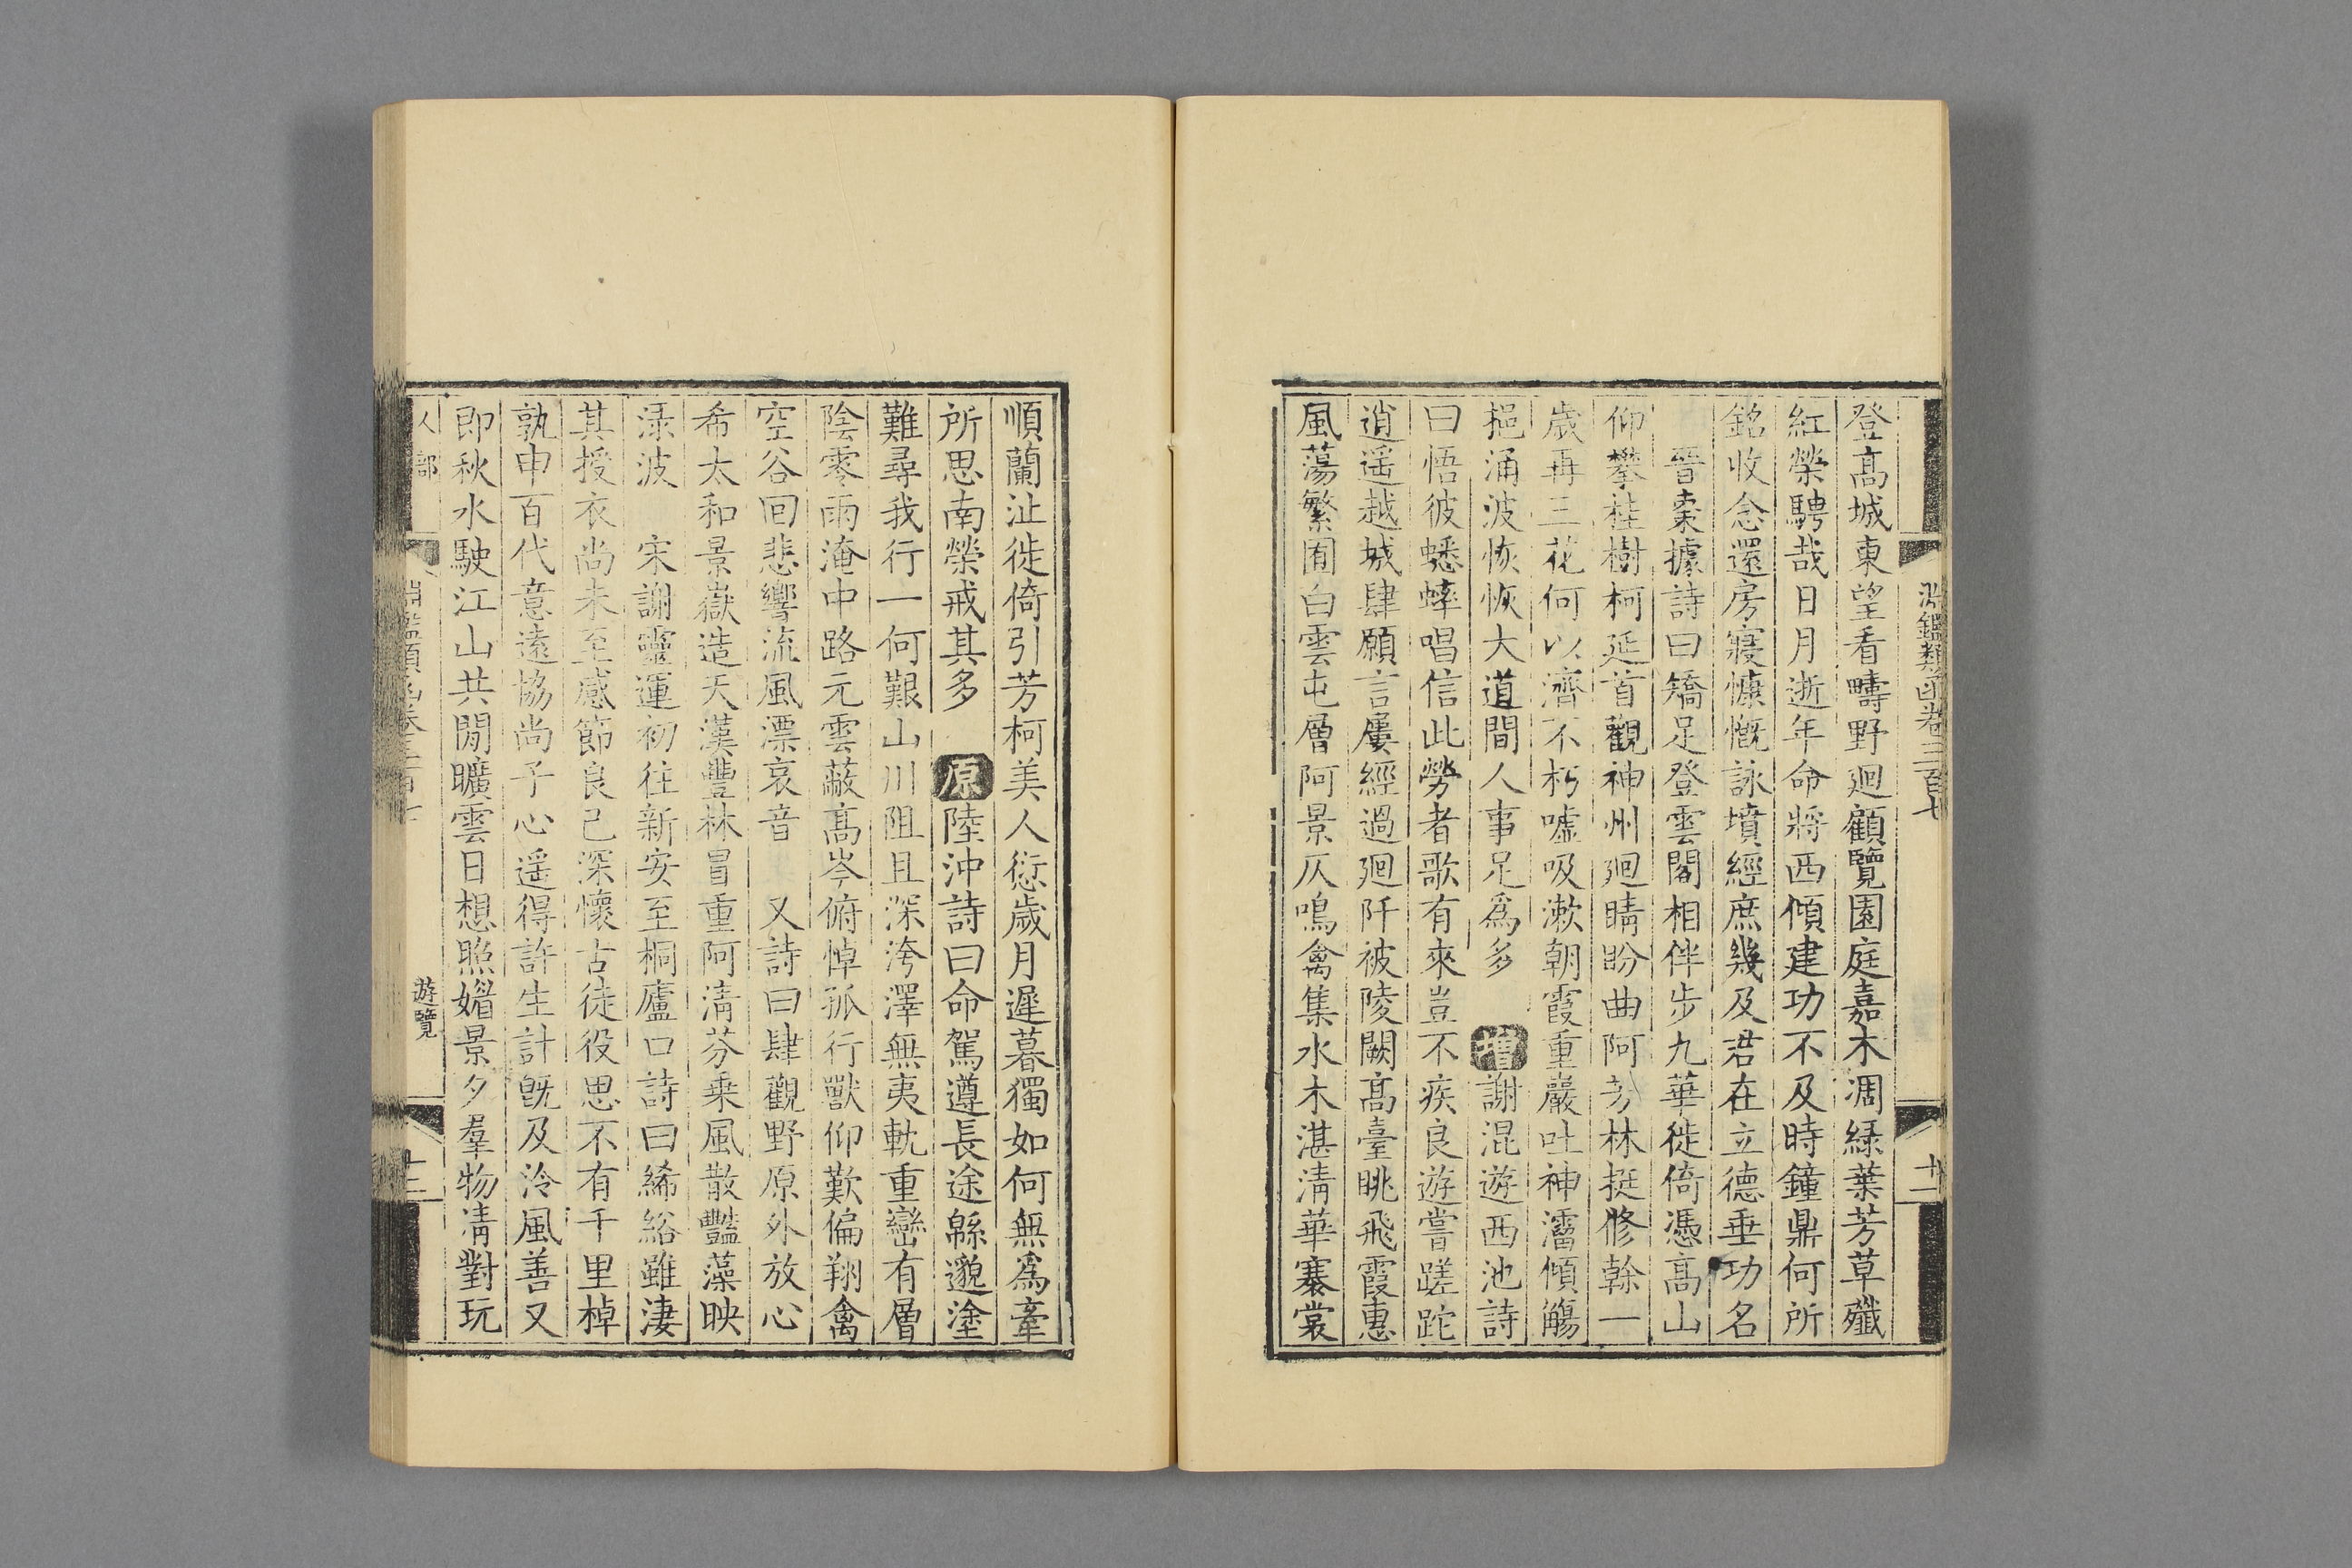 淵鑑類函卷三百七
十二
登高城東望看疇野廻顧覽園庭嘉木凋綠葉芳草殲
紅榮騁哉日月逝年命將西傾建功不及時鐘鼎何所
銘收念還房寢慷慨詠墳經庶幾及君在立德垂功名
晉棗據詩曰矯足登雲閣相伴步九華徙倚憑高山
仰攀桂樹柯延首觀神州廻睛盼曲阿芳林挺修榦一
歲再三花何以濟不朽嘘吸漱朝霞重巖吐神溜傾觴
挹涌波恢恢大道間人事足爲多 增謝混遊西池詩
曰悟彼蟋蟀唱信此勞者歌有來豈不疾良遊嘗蹉跎
逍遥越城肆願言屢經過廻阡被陵闕高臺眺飛霞惠
風蕩繁囿白雲屯層阿景仄鳴禽集水木湛淸華褰裳
順蘭沚徙倚引芳柯美人愆歲月遲暮獨如何無爲牽
所思南榮戒其多 原陸沖詩曰命駕遵長途緜邈塗
難尋我行一何艱山川阻且深洿澤無夷軌重巒有層
陰零雨淹中路元雲蔽高岑俯悼孤行獸仰歎偏翔禽
空谷回悲響流風漂哀音 又詩曰肆觀野原外放心
希太和景嶽造天漢豐林冒重阿淸芬乗風散豔藻映
渌波 宋謝靈運初往新安至桐廬口詩曰絺綌雖淒
其授衣尚未至感節良已深懷古徒役思不有千里棹
孰申百代意遠協尚子心遥得許生計旣及泠風善又
即秋水駛江山共開曠雲日想照媚景夕羣物淸對玩
人部
淵鑑類函卷三百七
遊覽
十二